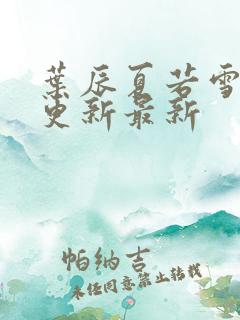 葉辰夏若雪
更新最新
帕纳吉
未经同意禁止转载